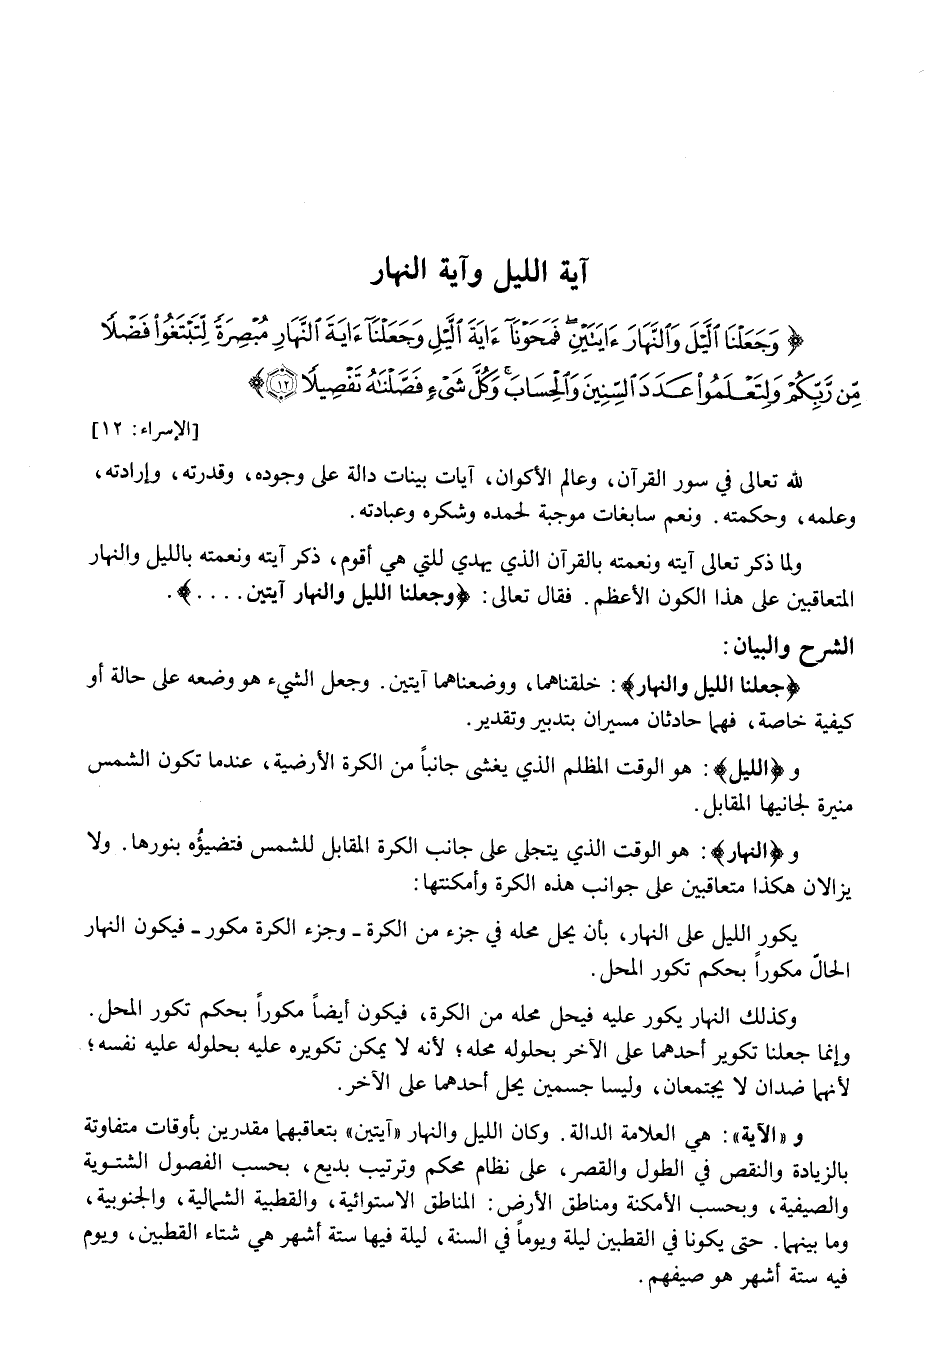 آية الليل وآية النهار
﴿ وَجَعَلْنَا ٱلَّيْلَ وَٱلنَّهَارَ ءَايَتَيْنِۖ فَمَحَوْنَآ ءَايَةَ ٱلَّيْلِ وَجَعَلْنَآ ءَايَةَ ٱلنَّهَارِ مُبْصِرَةً لِّتَبْتَغُوا۟ فَضْلًا
مِّن رَّبِّكُمْ وَلِتَعْلَمُوا۟ عَدَدَ ٱلسِّنِينَ وَٱلْحِسَابَۚ وَكُلَّ شَىْءٍ فَصَّلْنَٰهُ تَفْصِيلًا ١٢ ﴾
[الإسراء: ١٢]
لله تعالى في سور القرآن، وعالم الأكوان، آيات بينات دالة على وجوده، وقدرته، وإرادته،
وعلمه، وحكمته. ونعم سابغات موجبة لحمده وشكره وعبادته.
ولما ذكر تعالى آيته ونعمته بالقرآن الذي يهدي للتي هي أقوم، ذكر آيته ونعمته بالليل والنهار
المتعاقبين على هذا الكون الأعظم. فقال تعالى: ﴿وجعلنا الليل والنهار آيتين....﴾.
الشرح والبيان:
﴿جعلنا الليل والنهار﴾: خلقناهما، ووضعناهما آيتين. وجعل الشيء هو وضعه على حالة أو
كيفية خاصة، فهما حادثان مسيران بتدبير وتقدير.
و ﴿الليل﴾: هو الوقت المظلم الذي يغشى جانباً من الكرة الأرضية، عندما تكون الشمس
منيرة لجانبها المقابل.
و ﴿النهار﴾: هو الوقت الذي يتجلى على جانب الكرة المقابل للشمس فتضيؤُه بنورها. ولا
يزالان هكذا متعاقبين على جوانب هذه الكرة وأمكنتها:
يكور الليل على النهار، بأن يحل محله في جزء من الكرة ـ وجزء الكرة مكور ـ فيكون النهار
الحالّ مكوراً بحكم تكور المحل.
وكذلك النهار يكور عليه فيحل محله من الكرة، فيكون أيضاً مكوراً بحكم تكور المحل.
وإنما جعلنا تكوير أحدهما على الآخر بحلوله محله؛ لأنه لا يمكن تكويره عليه بحلوله عليه نفسه؛
لأنهما ضدان لا يجتمعان، وليسا جسمين يحل أحدهما على الآخر.
و «الآية»: هي العلامة الدالة. وكان الليل والنهار «آيتين» بتعاقبهما مقدرين بأوقات متفاوتة
بالزيادة والنقص في الطول والقصر، على نظام محكم وترتيب بديع، بحسب الفصول الشتوية
والصيفية، وبحسب الأمكنة ومناطق الأرض: المناطق الاستوائية، والقطبية الشمالية، والجنوبية،
وما بينهما. حتى يكونا في القطبين ليلة ويوماً في السنة، ليلة فيها ستة أشهر هي شتاء القطبين، ويوم
فيه ستة أشهر هو صيفهم.